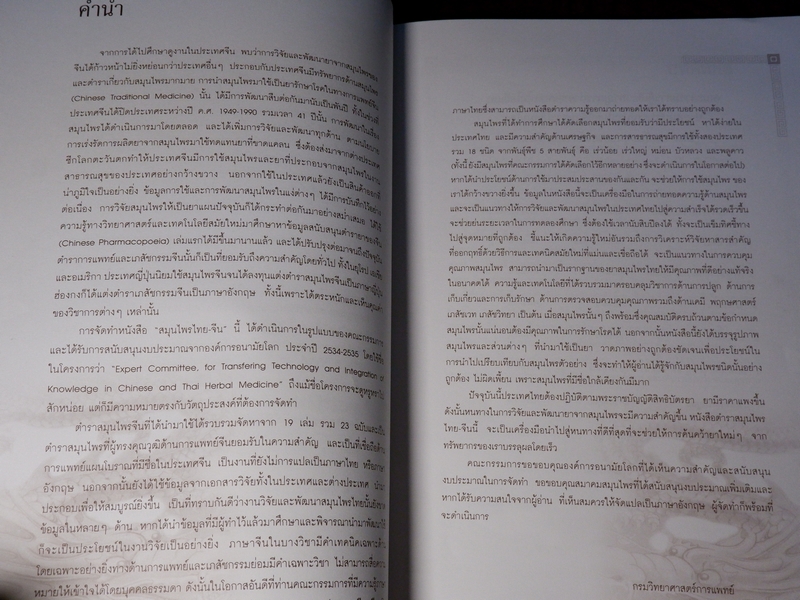 คำนำ
จากการได้ไปศึกษาดูงานในประเทศจีน พบว่าการวิจัยและพัฒนายาจากสมุนไพรของ
จีนได้ก้าวหน้าไม่ยิ่งหย่อนกว่าประเทศอื่นๆ ประกอบกับประเทศจีนมีทรัพยากรด้านสมุนไพร
และตำราเกี่ยวกับสมุนไพรมากมาย การนำสมุนไพรมาใช้เป็นยารักษาโรคในทางการแพทย์จีน
(Chinese Traditional Medicine) นั้น ได้มีการพัฒนาสืบต่อกันมานับเป็นพันปี ทั้งในช่วงที่
ประเทศจีนได้ปิดประเทศระหว่างปี ค.ศ. 1949-1990 รวมเวลา 41 ปีนั้น การพัฒนาในเรื่อง
สมุนไพรได้ดำเนินการมาโดยตลอด และได้เพิ่มการวิจัยและพัฒนาทุกด้าน ตามนโยบาย
การเร่งรัดการผลิตยาจากสมุนไพรมาใช้ทดแทนยาที่ขาดแคลน ซึ่งต้องส่งมาจากต่างประเทศ
ซีกโลกตะวันตกทำให้ประเทศจีนมีการใช้สมุนไพรและยาที่ประกอบจากสมุนไพรในงาน
สาธารณสุขของประเทศอย่างกว้างขวาง นอกจากใช้ในประเทศแล้วยังเป็นสินค้าออกที่
น่าภูมิใจเป็นอย่างยิ่ง ข้อมูลการใช้และการพัฒนาสมุนไพรในแง่ต่างๆ ได้มีการบันทึกไว้อย่าง
ต่อเนื่อง การวิจัยสมุนไพรให้เป็นยาแผนปัจจุบันก็ได้กระทำต่อกันมาอย่างสม่ำเสมอ ได้ใช้
ความรู้ทางวิทยาศาสตร์และเทคโนโลยีสมัยใหม่มาศึกษาหาข้อมูลสนับสนุนตำรายาของจีน
(Chinese Pharmacopoeia) เล่มแรกได้มีขึ้นมานานแล้ว และได้ปรับปรุงต่อมาจนถึงปัจจุบัน
ตำราการแพทย์และเภสัชกรรมจีนนั้นก็เป็นที่ยอมรับถึงความสำคัญโดยทั่วไป ทั้งในยุโรป เอเชีย
และอเมริกา ประเทศญี่ปุ่นนิยมใช้สมุนไพรจีนจนได้ลงทุนแต่งตำราสมุนไพรจีนเป็นภาษาญี่ปุ่น
ฮ่องกงก็ได้แต่งตำราเภสัชกรรมจีนเป็นภาษาอังกฤษ ทั้งนี้เพราะได้ตระหนักและเห็นคุณค่า
ของวิชาการต่างๆ เหล่านั้น
การจัดทำหนังสือ "สมุนไพรไทย-จีน" นี้ ได้ดำเนินการในรูปแบบของคณะกรรมการ
และได้รับการสนับสนุนงบประมาณจากองค์การอนามัยโลก ประจำปี 2534-2535 โดยใช้ชื่อ
ในโครงการว่า "Expert Committee, for Transfering Technology and Integration of
Knowledge in Chinese and Thai Herbal Medicine" ถึงแม้ชื่อโครงการจะดูหรูหราไป
สักหน่อย แต่ก็มีความหมายตรงกับวัตถุประสงค์ที่ต้องการจัดทำ
ตำราสมุนไพรจีนที่ได้นำมาใช้ได้รวบรวมจัดหาจาก 19 เล่ม รวม 23 ฉบับ
ตำราสมุนไพรที่ผู้ทรงคุณวุฒิด้านการแพทย์จีนยอมรับในความสำคัญ และเป็นที่เชื่อถือด้าน
การแพทย์แผนโบราณที่มีชื่อในประเทศจีน เป็นงานที่ยังไม่การแปลเป็นภาษาไทย หรือภาษา
อังกฤษ นอกจากนั้นยังได้ใช้ข้อมูลจากเอกสารวิจัยทั้งในประเทศและต่างประเทศ นำมา
ประกอบเพื่อให้สมบูรณ์ยิ่งขึ้น เป็นที่ทราบกันดีว่างานวิจัยและพัฒนาสมุนไพรนั้นยังขาด
ข้อมูลในหลายๆ ด้าน หากได้นำข้อมูลที่มีผู้ทำไว้แล้วมาศึกษาและพิจารณานำมาพัฒนาใช้
ก็จะเป็นประโยชน์ในงานวิจัยเป็นอย่างยิ่ง ภาษาจีนในบางวิชามีคำเทคนิคเฉพาะด้าน
โดยเฉพาะอย่างยิ่งทางด้านการแพทย์และเภสัชกรรมย่อมมีคำเฉพาะวิชา ไม่สามารถสื่อความ
หมายให้เข้าใจได้โดยบุคคลธรรมดา ดังนั้นในโอกาสอันดีที่ท่านคณะกรรมการที่มีความรู้ภาษา
ภาษาไทยซึ่งสามารถเป็นหนังสือตำราความรู้ออกมาถ่ายทอดให้เราได้ทราบอย่างถูกต้อง
สมุนไพรที่ได้ทำการได้คัดเลือกสมุนไพรที่ยอมรับว่ามีประโยชน์ หาได้ง่ายใน
ประเทศไทย และมีความสำคัญด้านเศรษฐกิจ และการสาธารณสุขมีการใช้ทั้งสองประเทศ
รวม 18 ชนิด จากพันธุ์พืช 5 สายพันธุ์ คือ เร่วน้อย เร่วใหญ่ หม่อน บัวหลวง และพลูคาว
(ทั้งนี้ ยังมีสมุนไพรที่คณะกรรมการได้คัดเลือกไว้อีกหลายอย่าง ซึ่งจะดำเนินการในโอกาสต่อไป)
หากได้นำประโยชน์ด้านการใช้มาประสมประสานของกันและกัน จะช่วยให้การใช้สมุนไพร ของ
เราได้กว้างขวางยิ่งขึ้น ข้อมูลในหนังสือนี้จะเป็นเครื่องมือในการถ่ายทอดความรู้ด้านสมุนไพร
และจะเป็นแนวทางให้การวิจัยและพัฒนาสมุนไพรในประเทศไทยไปสู่ความสำเร็จได้รวดเร็วขึ้น
จะช่วยย่นระยะเวลาในการทดลองศึกษา ซึ่งต้องใช้เวลานับสิบปีลงได้ ทั้งจะเป็นเข็มทิศชี้ทาง
ไปสู่จุดหมายที่ถูกต้อง ชี้แนะให้เกิดความรู้ใหม่อันรวมถึงการวิเคราะห์วิจัยหาสารสำคัญ
ที่ออกฤทธิ์ด้วยวิธีการและเทคนิคสมัยใหม่ที่แม่นและเชื่อถือได้ จะเป็นแนวทางในการควบคุม
คุณภาพสมุนไพร สามารถนำมาเป็นรากฐานของยาสมุนไพรไทยให้มีคุณภาพที่ดีอย่างแท้จริง
ในอนาคตได้ ความรู้และเทคโนโลยีที่ได้รวบรวมมาครอบคลุมวิชาการด้านการปลูก ด้านการ
เก็บเกี่ยวและการเก็บรักษา ด้านการตรวจสอบควบคุมคุณภาพรวมถึงด้านเคมี พฤกษศาสตร์
เภสัชเวท เภสัชวิทยา เป็นต้น เมื่อสมุนไพรนั้นๆ ถึงพร้อมซึ่งคุณสมบัติครบถ้วนตามข้อกำหนด
สมุนไพรนั้นแน่นอนต้องมีคุณภาพในการรักษาโรคได้ นอกจากนั้นหนังสือนี้ยังได้บรรจุรูปภาพ
สมุนไพรและส่วนต่างๆ ที่นำมาใช้เป็นยา วาดภาพอย่างถูกต้องชัดเจนเพื่อประโยชน์ใน
การนำไปเปรียบเทียบกับสมุนไพรตัวอย่าง ซึ่งจะทำให้ผู้อ่านได้รู้จักกับสมุนไพรชนิดนั้นอย่าง
ถูกต้อง ไม่ผิดเพี้ยน เพราะสมุนไพรที่มีชื่อใกล้เคียงกันมีมาก
ปัจจุบันนี้ประเทศไทยต้องปฏิบัติตามพระราชบัญญัติสิทธิบัตรยา ยามีราคาแพงขึ้น
ดังนั้นหนทางในการวิจัยและพัฒนายาจากสมุนไพรจะมีความสำคัญขึ้น หนังสือตำราสมุนไพร
ไทย-จีนนี้ จะเป็นเครื่องมือนำไปสู่หนทางที่ดีที่สุดที่จะช่วยให้การค้นคว้ายาใหม่ๆ จาก
ทรัพยากรของเราบรรลุผลโดยเร็ว
คณะกรรมการขอขอบคุณองค์การอนามัยโลกที่ได้เห็นความสำคัญและสนับสนุน
งบประมาณในการจัดทำ ขอขอบคุณสมาคมสมุนไพรไทยที่ได้สนับสนุนงบประมาณเพิ่มเติมและ
หากได้รับความสนใจจากผู้อ่าน ที่เห็นสมควรให้จัดแปลเป็นภาษาอังกฤษ ผู้จัดทำก็พร้อมที่
จะดำเนินการ
กรมวิทยาศาสตร์การแพทย์